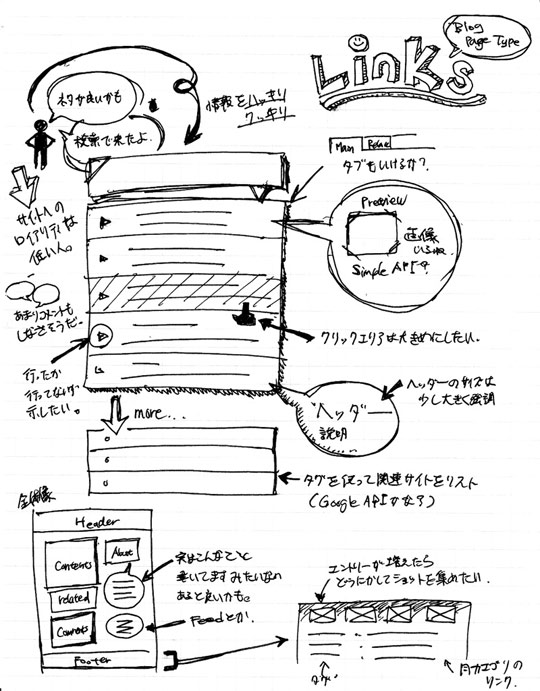 Blog
Page Type
Links
ネタが良いかも
検索で来たよ.
情報をハッキリ
クッキリ
Main
タブもいけるか?
サイトへの
ロイアリティな
低い人。
Preview
画像
いるね.
Simple APIか?
あまりコメントも
しなさそうだ〜
クリックエリアは大きめにしたい.
行ったか
行ってないか
示したい。
more...
ヘッダー
説明
ヘッダーのサイズは
少し大きく強調
タグを使って関連サイトをリスト
(Google APIかな?)
全体像
Header
Contents
About
related
Footer
実はこんなこと
書いてます みたいなの
あると良いかも。
Feedとか.
エントリーが増えたら
どうにかしてショットを集めたい.
タグ
同カテゴリの
リンク.